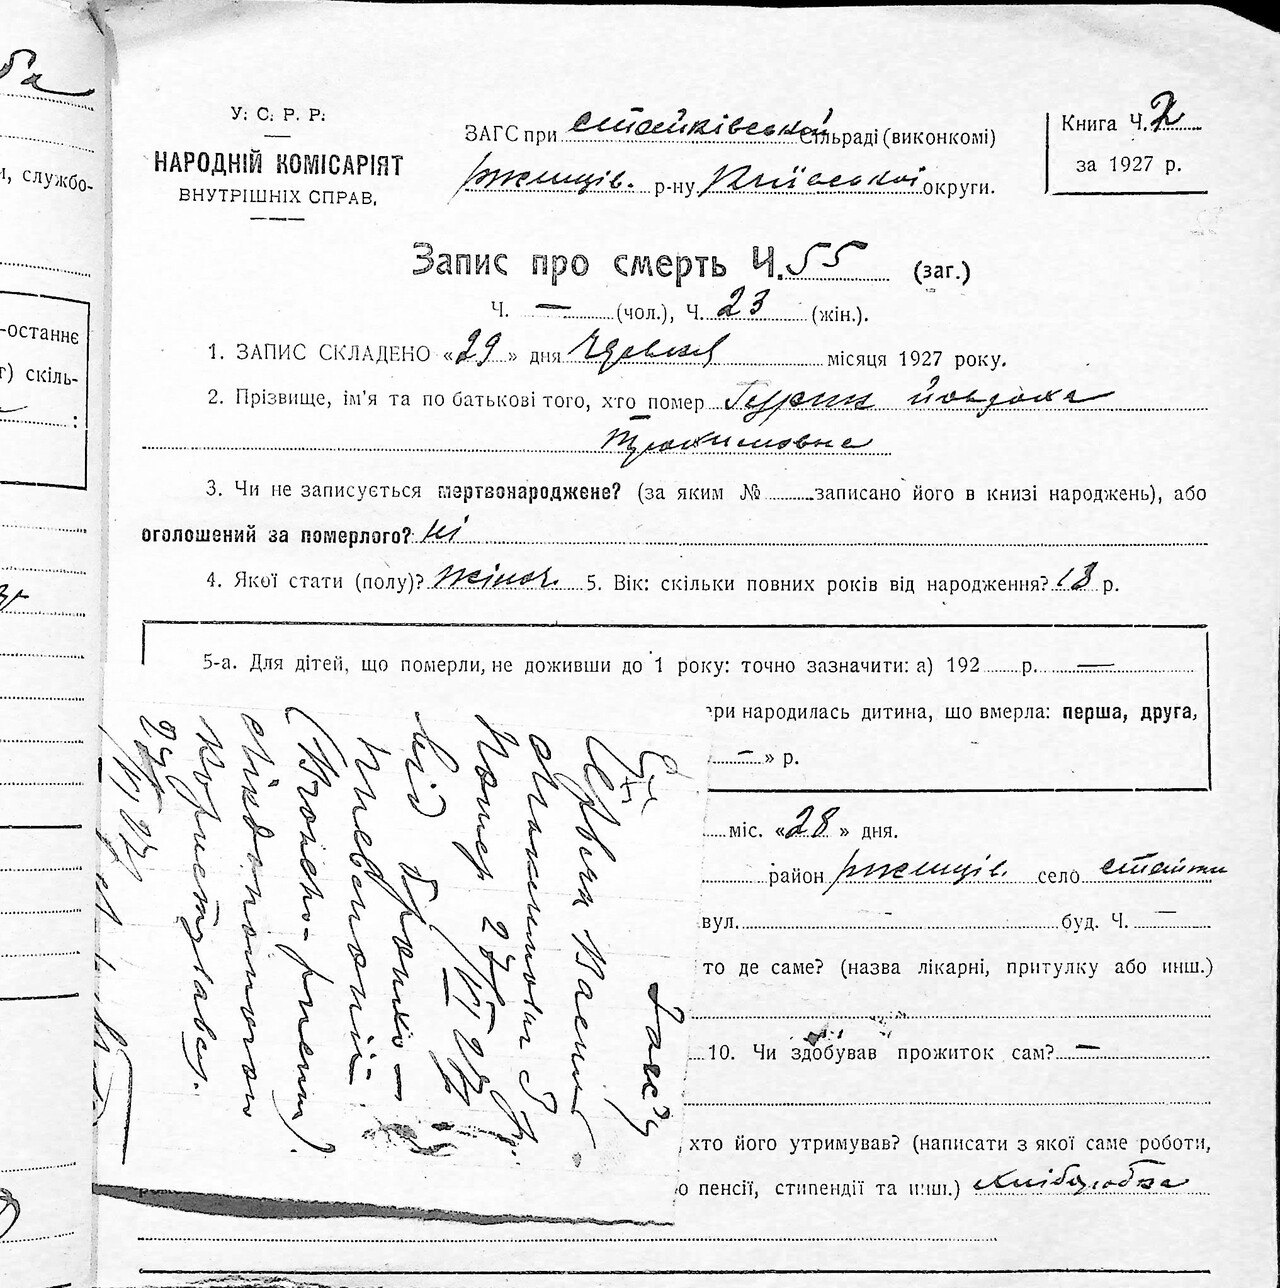 У. С. Р. Р.
НАРОДНІЙ КОМІСАРІЯТ
ВНУТРІШНІХ СПРАВ.
ЗАГС при стайківській сільраді (виконкомі)
ржищів. р-ну Київської округи.
Книга Ч. 2
за 1927 р.
Запис про смерть Ч. 55 (заг.)
Ч. — (чол.), Ч. 23 (жін.).
1. ЗАПИС СКЛАДЕНО «29» дня червня місяця 1927 року.
2. Прізвище, ім'я та по батькові того, хто помер Гурин Йовдоха
3. Чи не записується мертвонароджене? (за яким № записано його в книзі народжень), або
оголошений за померлого? ні
4. Якої стати (полу)? жіноч. 5. Вік: скільки повних років від народження? 18 р.
5-а. Для дітей, що померли, не доживши до 1 року: точно зазначити: а) 192 р. —
ери народилась дитина, що вмерла: перша, друга,
— » р.
міс. «28» дня.
район ржищів. село стайки
вул. – буд. Ч. —
то де саме? (назва лікарні, притулку або инш.)
10. Чи здобував прожиток сам? —
, хто його утримував? (написати з якої саме роботи,
о пенсії, стипендії та инш.) хліборобка
Загсу
помер 27/VI 27 р.
від бронхо-
пневмонії
и, службо-
-останнє
г) скіль-
: